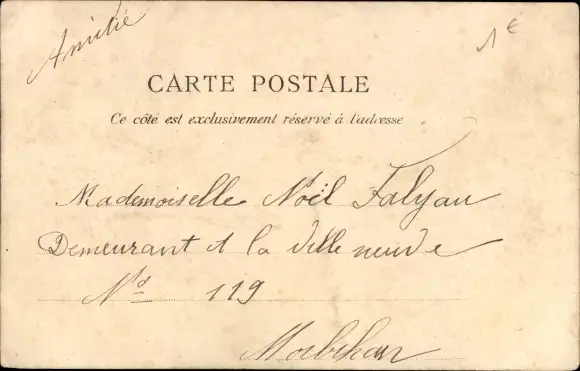 Amitié
1€
CARTE POSTALE
Ce côté est exclusivement réservé à l'adresse
Mademoiselle Noël Falyau
Demeurant A la Ville neuve
No 119
Morbihan